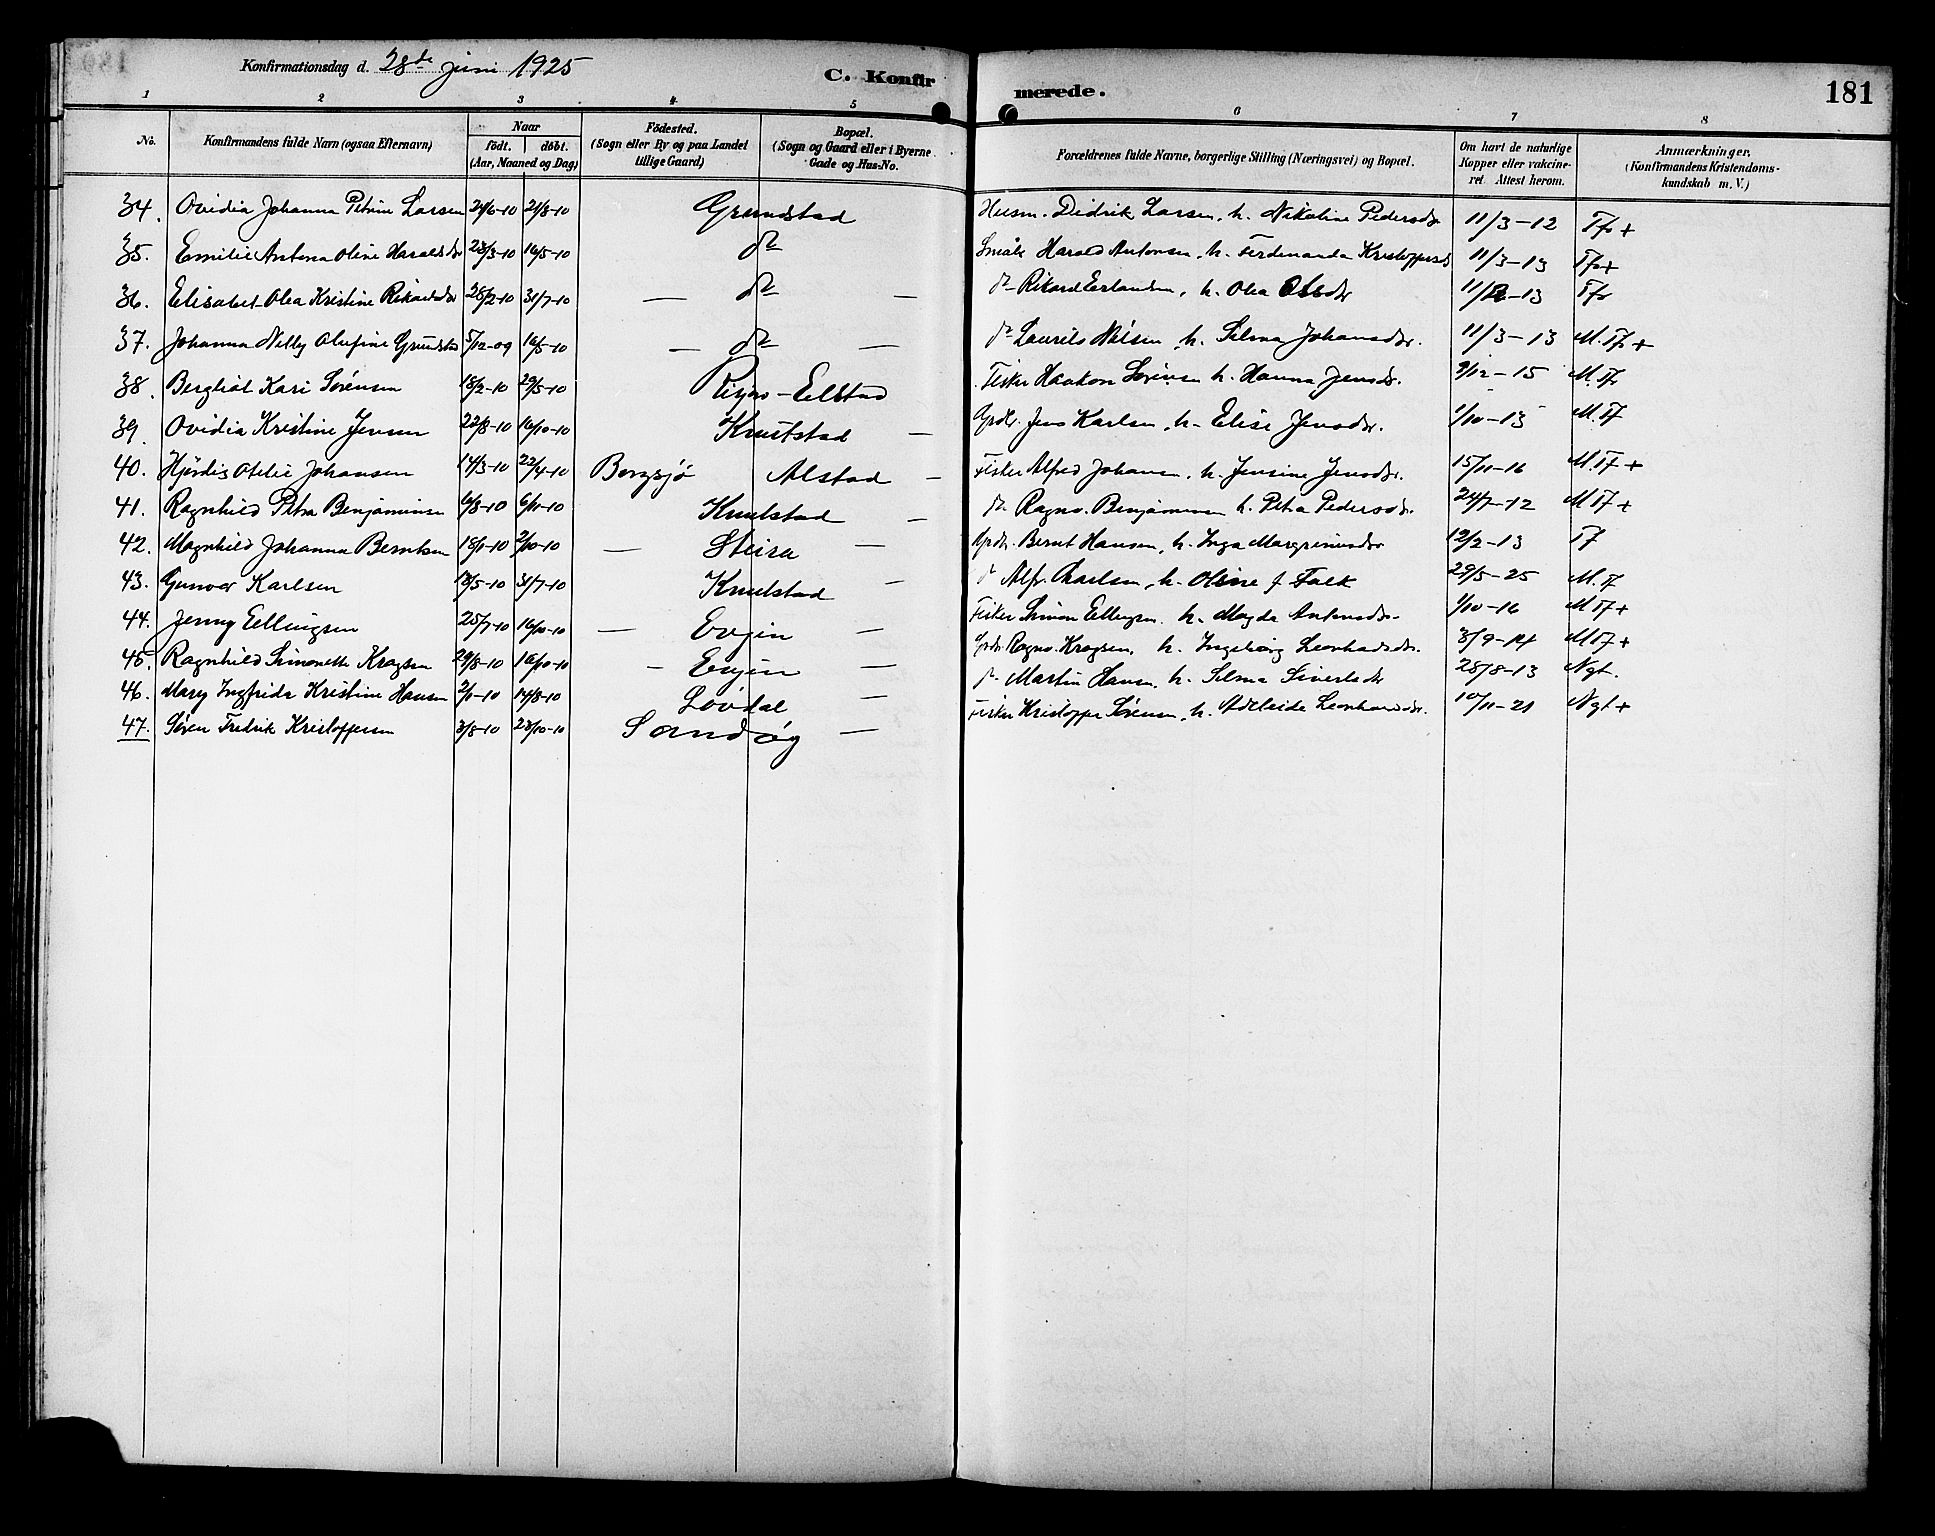 Konfirmationsdag d. 28de juni 1925 C. Konfirmerede. 181
1 2 3 4 5 6 7 8
No. Konfirmandens fulde Navn (ogsaa Efternavn) Naar födt. döbt. (Aar, Maaned og Dag) Födested. (Sogn eller By og paa Landet tillige Gaard) Bopæl. (Sogn og Gaard eller i Byerne Gade og Hus-No. Forældrenes fulde Navne, borgerlige Stilling (Næringsvei) og Bopæl. Om havt de naturlige Kopper eller vakcineret. Attest herom. Anmærkninger. (Konfirmandens Kristendomskundskab m. V.)
34. Ovidia Johanna Petrine Larsen 24/6-10 21/8-10 Grundstad Husm. Didrik Larsen, h. Nikoline Pedersdr 11/3-12 Tfr +
35. Emilie Antona Oline Haraldsdr 28/3-10 16/5-10 do Småbr Harald Antonsen, h. Ferdinanda Kristoffersd 11/3-13 Tfr +
36. Elisabet Olea Kristine Rikardsdr 28/2-10 31/7-10 — do — do Rikard Erlandsen, h. Olea Olsdr 11/-13 Tfr
37. Johanna Nelly Olufine Grundstad 5/12-09 16/5-10 — do — do Laurits Nilsen, h. Selma Johansdr. 11/3-13 M.Tfr +
38. Bergliot Kari Sørensen 18/2-10 29/5-10 -Ellstad Fisker Haakon Sørensen h. Hanna Jensdr. 9/12-15 M.Tfr
39. Ovidia Kristine Jensen 22/8-10 16/10-10 Knutstad — Grdbr. Jens Karlsen, h. Elise Jensdr. 1/10-13 M.Tf
40. Hjørdis Otelie Johansen 14/3-10 22/4-10 Borgsjö Alstad — Fisker Alfred Johansen, h. Jensine Jensdr. 15/11-16 M.Tf +
41. Ragnhild Petra Benjaminsen 6/8-10 6/11-10 Knutstad — do Ragnv. Benjaminsen h. Petra Pedersdr. 24/7-12 M Tf +
42. Magnhild Johanna Berntsen 18/1-10 2/10-10 — Steira — Grdbr. Bernt Hansen, h. Inga Margrinusdr 12/2-13 Tf
43. Gunvor Karlsen 18/5-10 31/7-10 Knutstad — do Alfr. Karlsen, h. Oline f Falk 29/5-25 M.Tf
44. Jenny Ellingsen 25/7-10 16/10-10 — Evjen — Fisker Simon Ellingsen. h. Magda Antonsdr. 1/10-16 M Tf +
45. Ragnhild Simonette Krogsen 29/8-10 16/10-10 — Evjen — Grdbr. Ragnv. Krogsen, h. Ingeborg Leonhardsdr. 3/9-14 M Tf +
46. Mary Ingfrida Kristine Hansen 2/1-10 14/8-10 Lövdal — do Martin Hansen, h. Selma Sivertsdr 28/8-13 Ngt.
47. Søren Fredrik Kristoffersen 3/8-10 23/10-10 Sandøy — Fisker Kristoffer Sørensen, h. Adelaide Leonhardsdr. 10/11-21 Ngt +